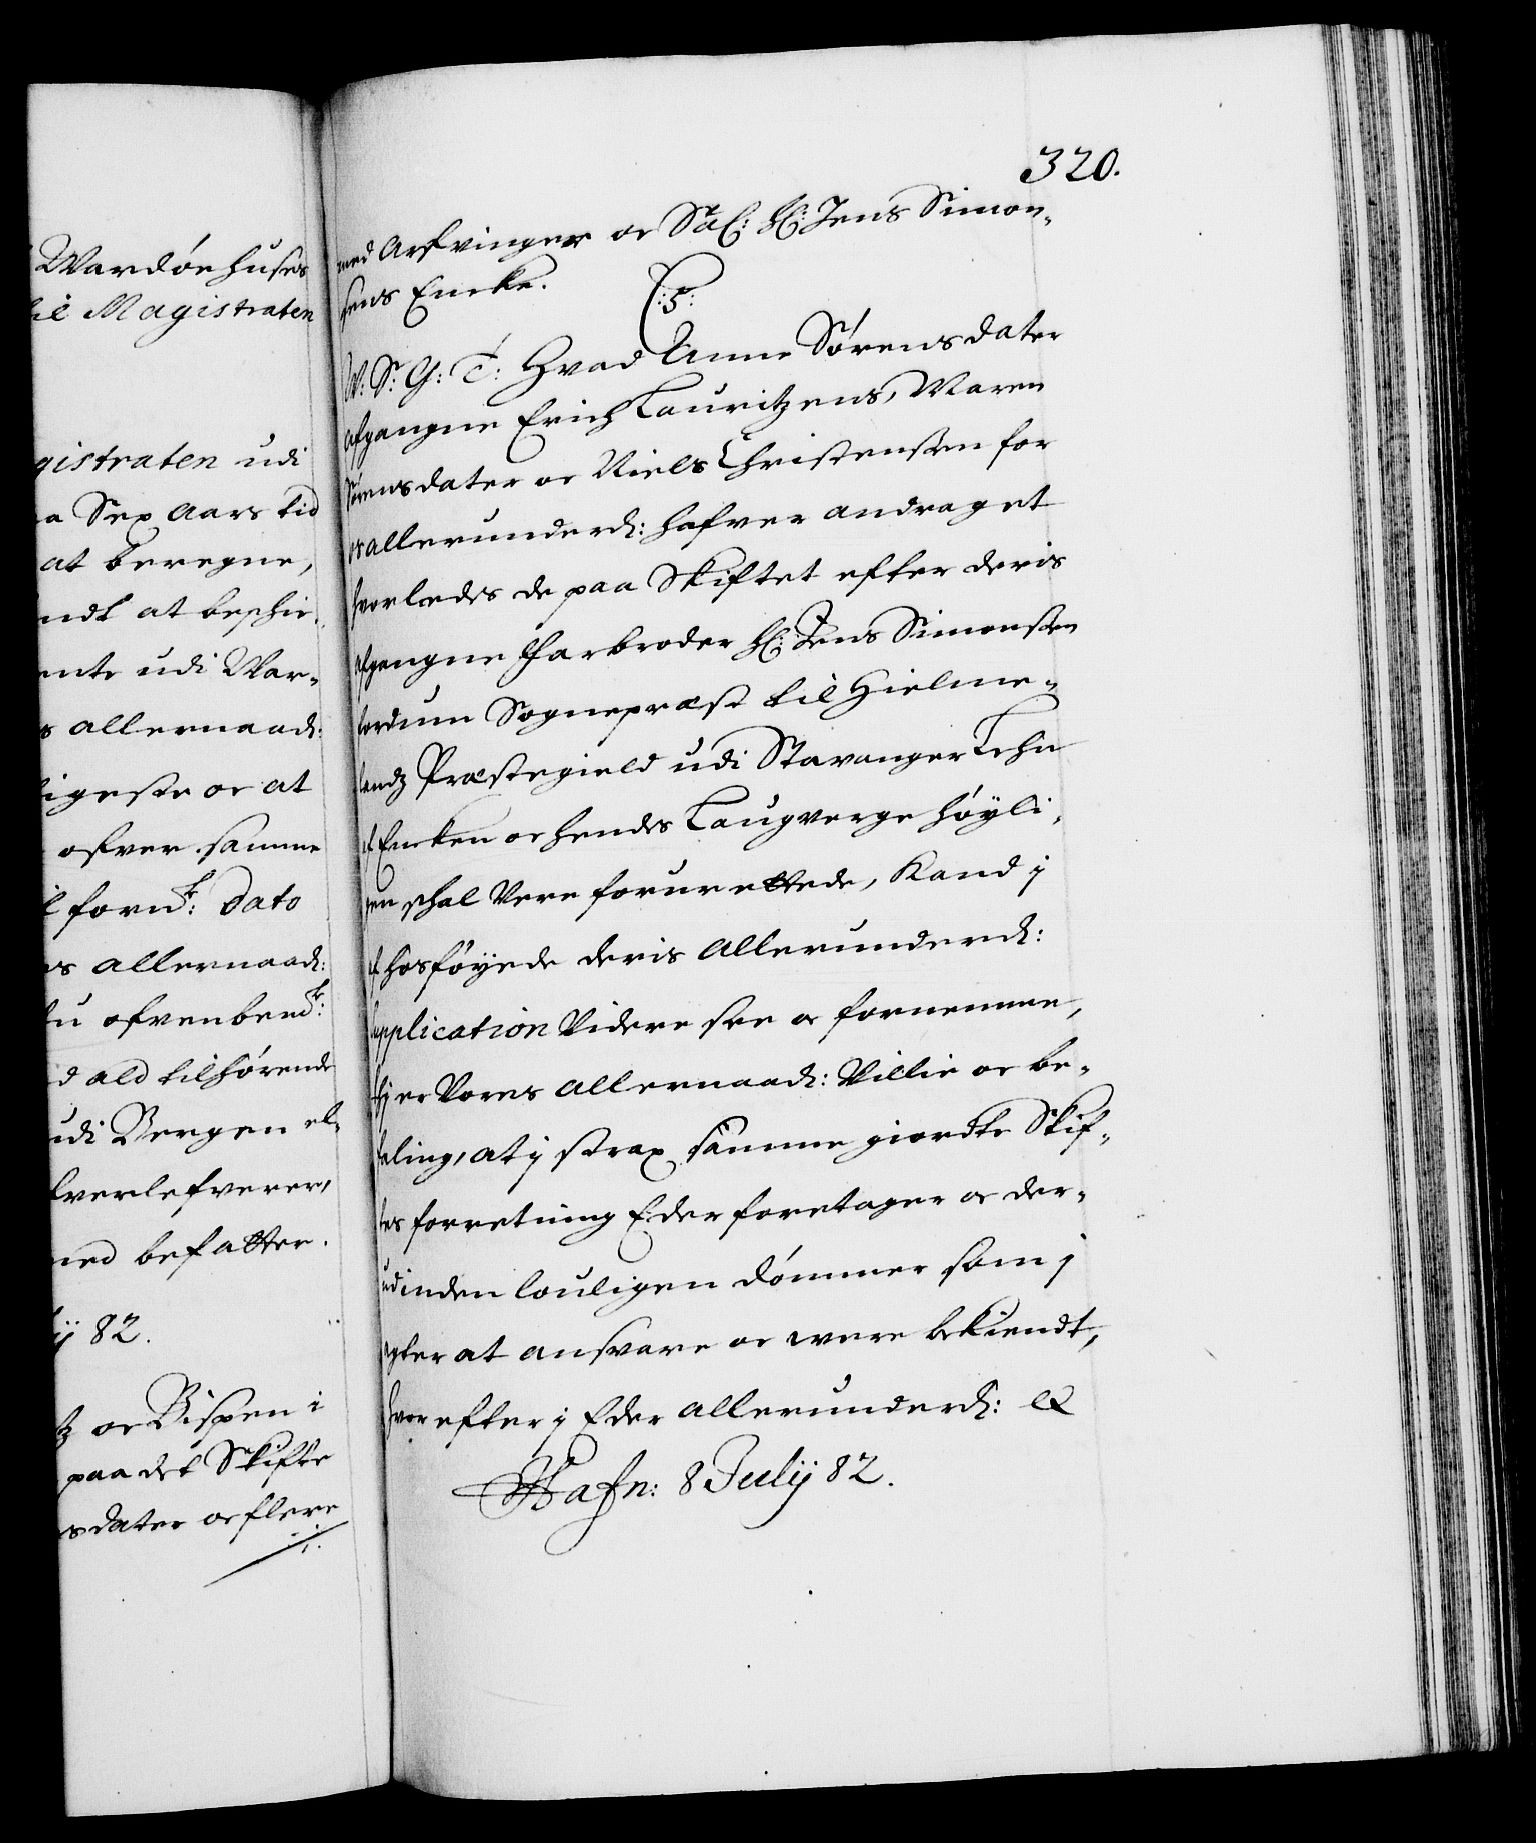 Wardøehuses
til Magistraten
gistraten udi
a Sex Aars tid
at beregne,
endt at beskie-
ente udi War-
s allernaad:
ligeste oc at
ofver samme
l fornt: Dato
os allernaad:
du ofvenbent:
d ald tilhørende
udi Bergen el-
fverlefverer,
med befatter.
ij 82.
tz oc Bispen i
paa det Skifte
sdater oc flere
./.
320.
med Arfvinger oc Sal: Hr: Jens Simon-
sens Encke.
:5:
W: S: G: T: Hvad Anne Sørensdater
afgangne Erich Lauritzens, Maren
Sørensdater oc Niels Christensen for
os allerunderd: hafver andraget
hvorledes de paa Skiftet efter deris
afgangne Farbroder Hr: Jens Simonsen
fordum Sognepræst til Hielme-
landz Præstegield udi Stavanger Lehn
af Encken oc hendes Laugverge høyli-
gen skal Være forurettede, Kand j
af hosføyede deris allerunderd:
Supplication Videre see oc fornemme,
thj er Vores allernaad: Villie oc be-
faling, at j strax samme giordte Skif-
tes forretning Eder foretager oc der-
udinden louligen dømmer som j
agter at ansvare oc være bekiendt,
hvorefter j Eder allerunderd: &
Hafn: 8 Julij 82.